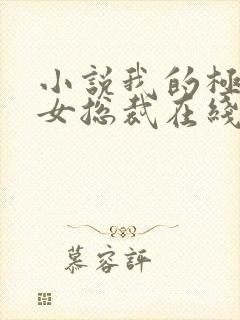 小説我的極
女总裁在綫
慕容評